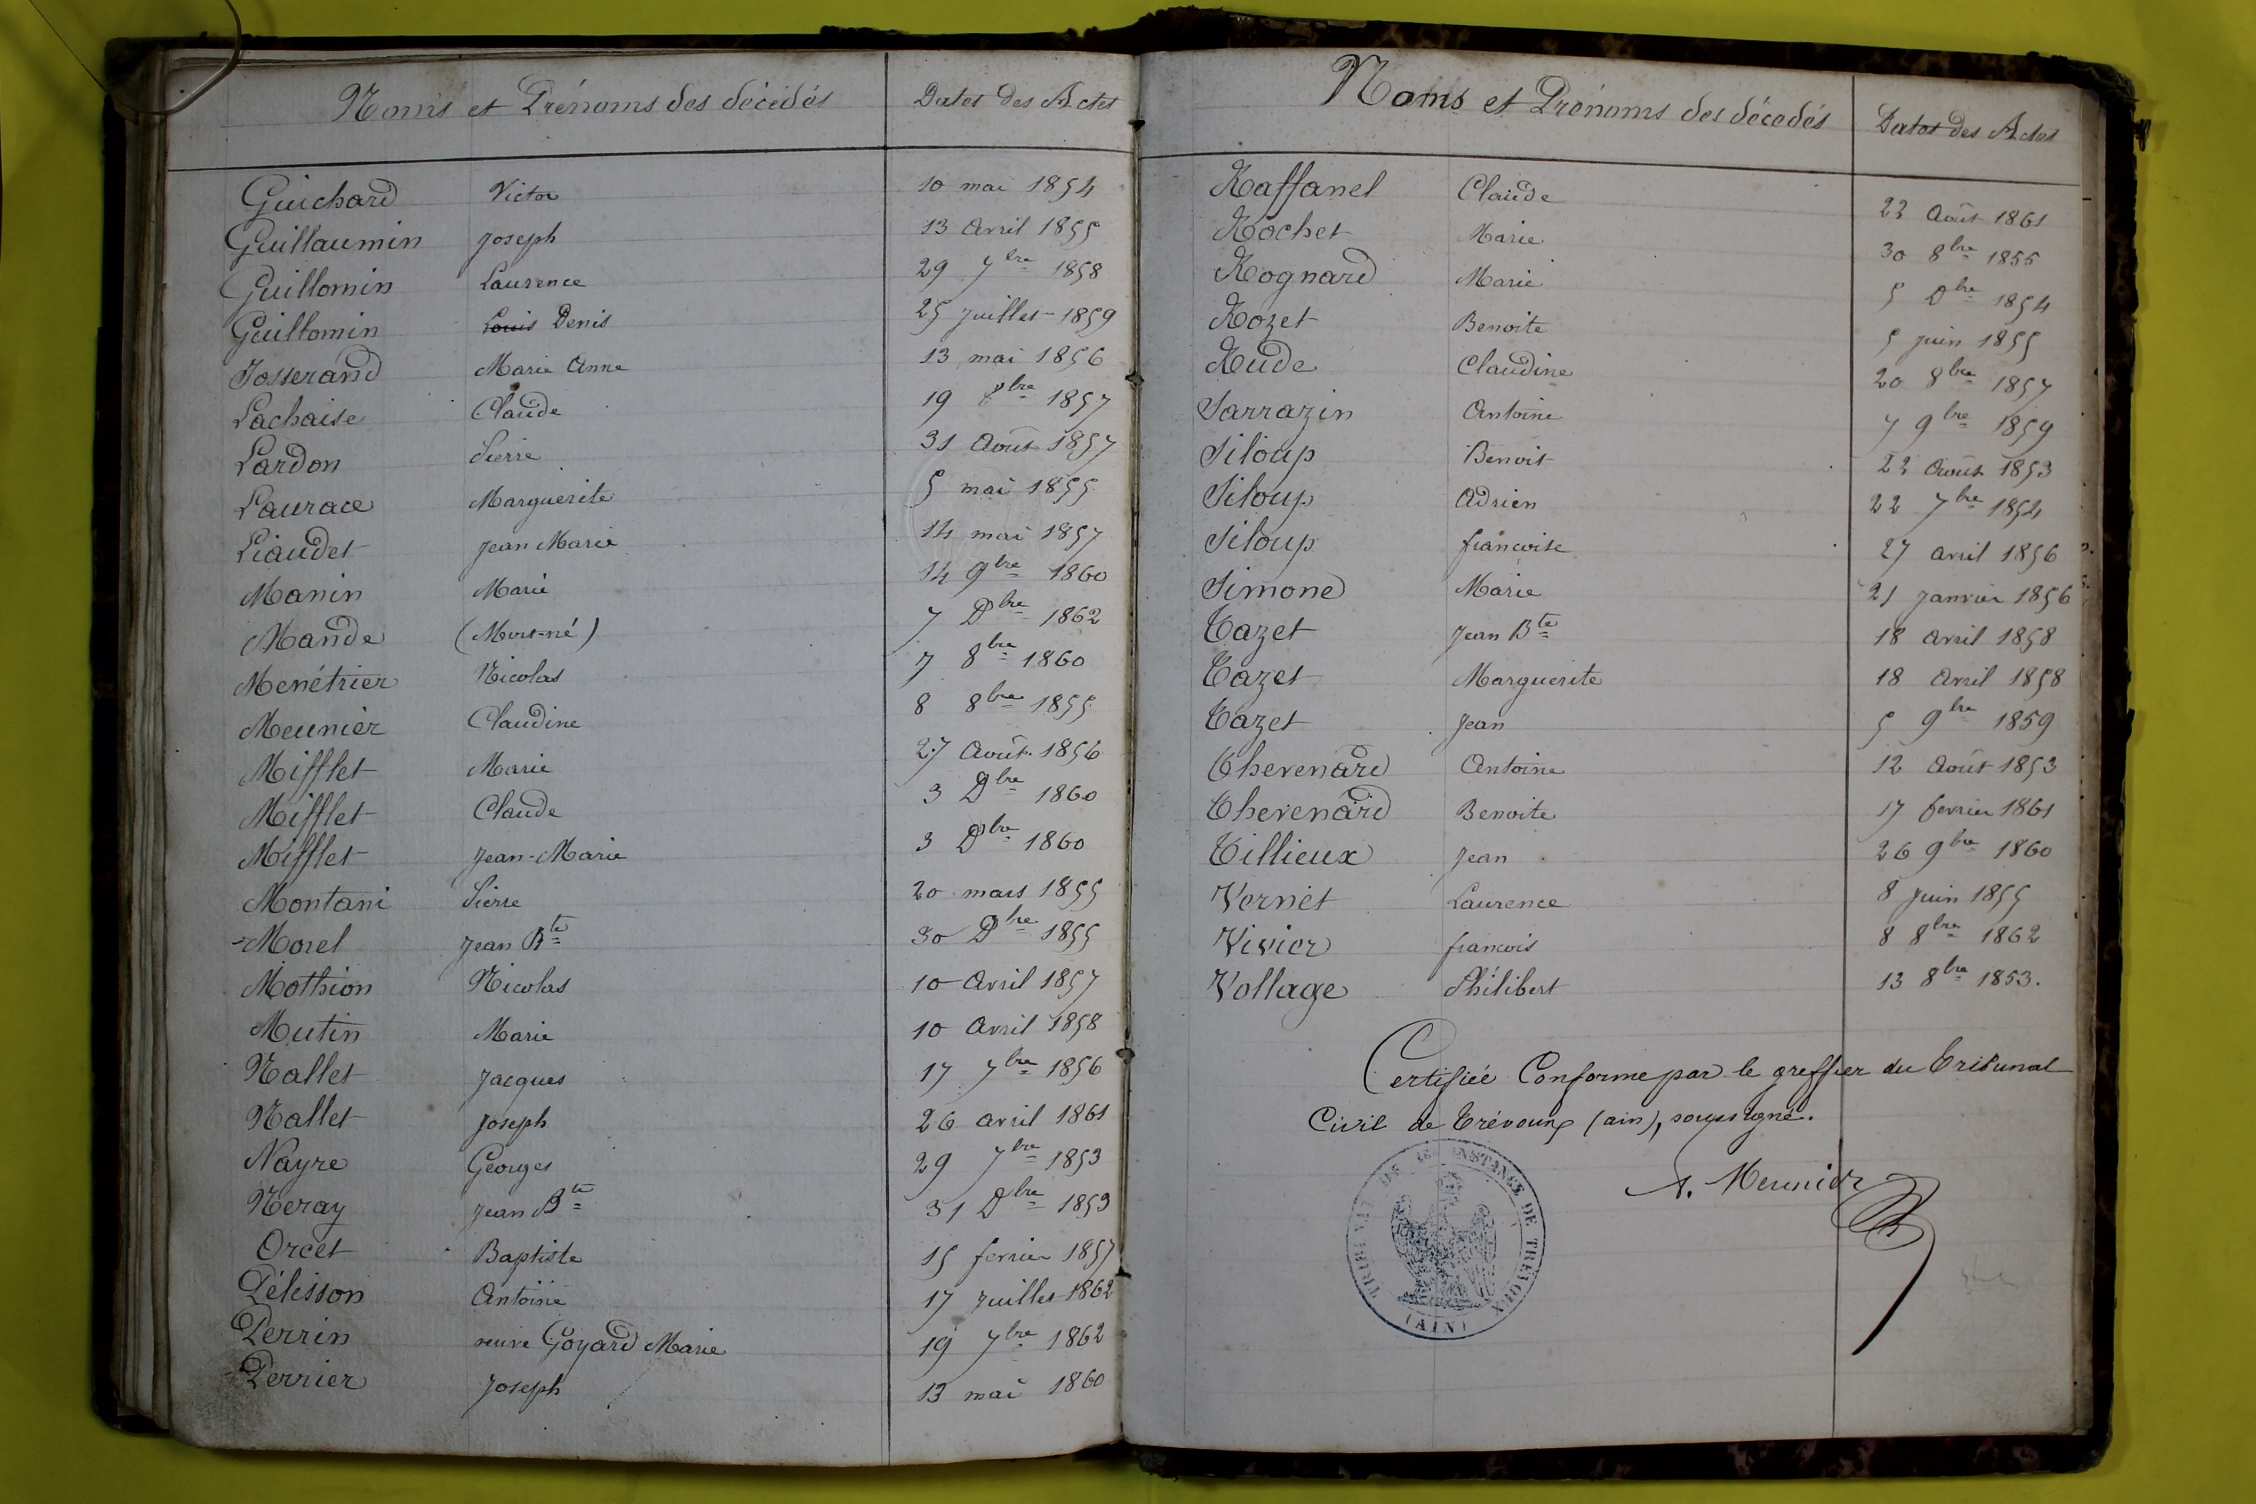 Noms et Prénoms des décédés Dates des Actes
Guichard Victor 10 mai 1854
Guillaumin Joseph 13 avril 1855
Guillomin Laurence 29 7bre 1858
Guillomin Louis Denis 25 juillet 1859
Josserand Marie Anne 13 mai 1856
Lachaise Claude 19 8bre 1857
Lardon Pierre 31 Août 1857
Laurace Marguerite 5 mai 1855
Liaudet Jean Marie 14 mai 1857
Manin Marie 14 9bre 1860
Mande (Mort-né) 7 Dbre 1862
Menétrier Nicolas 7 8bre 1860
Meunier Claudine 8 8bre 1855
Mifflet Marie 27 Août 1856
Mifflet Claude 3 Dbre 1860
Mifflet Jean-Marie 3 Dbre 1860
Montani Pierre 20 mars 1855
Morel Jean Bte 30 Dbre 1855
Mothion Nicolas 10 Avril 1857
Mutin Marie 10 Avril 1858
Nallet Jacques 17 7bre 1856
Nallet Joseph 26 avril 1861
Nayre Georges 29 7bre 1853
Neray Jean Bte 31 Dbre 1853
Orcet Baptiste 15 fevrier 1857
Pélisson Antoine 17 juillet 1862
Perrin veuve Goyard Marie 19 7bre 1862
Perrier Joseph 13 mai 1860
Noms et Prénoms des décedés Dates des Actes
Raffanel Claude 22 Août 1861
Rochet Marie 30 8bre 1855
Rognard Marie 5 Dbre 1854
Rozet Benoite 5 juin 1855
Rude Claudine 20 8bre 1857
Sarrazin Antoine 7 9bre 1859
Siloup Benoit 22 Août 1853
Siloup Adrien 22 7bre 1854
Siloup francoise 27 avril 1856
Simond Marie 21 janvier 1856
Tazet Jean Bte 18 avril 1858
Tazet Marguerite 18 Avril 1858
Tazet Jean 5 9bre 1859
Thevenard Antoine 12 Août 1853
Thevenard Benoite 17 fevrier 1861
Tillieux Jean 26 9bre 1860
Vernet Laurence 8 juin 1855
Vivier francois 8 8bre 1862
Vollage Philibert 13 8bre 1853.
Certifiée Conforme par le greffier du Tribunal
Civil de Trévoux (ain), soussigné.
A. Meunier
TRIBUNAL DE 1E INSTANCE DE TREVOUX
(AIN)